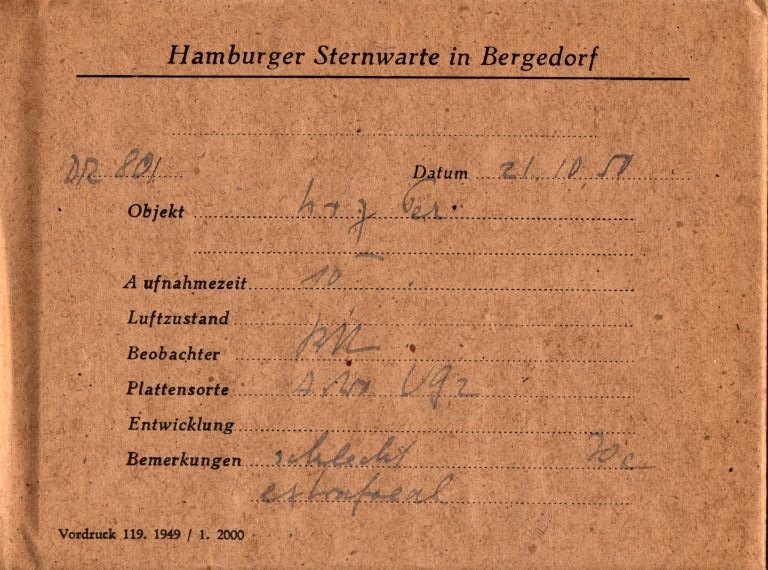 Hamburger Sternwarte in Bergedorf
DR 801 Datum 21.10.50
Objekt h + χ Per.
Aufnahmezeit 10
Luftzustand
Beobachter
Plattensorte
Entwicklung
Bemerkungen schlecht
extrafocal
Vordruck 119. 1949 / 1. 2000